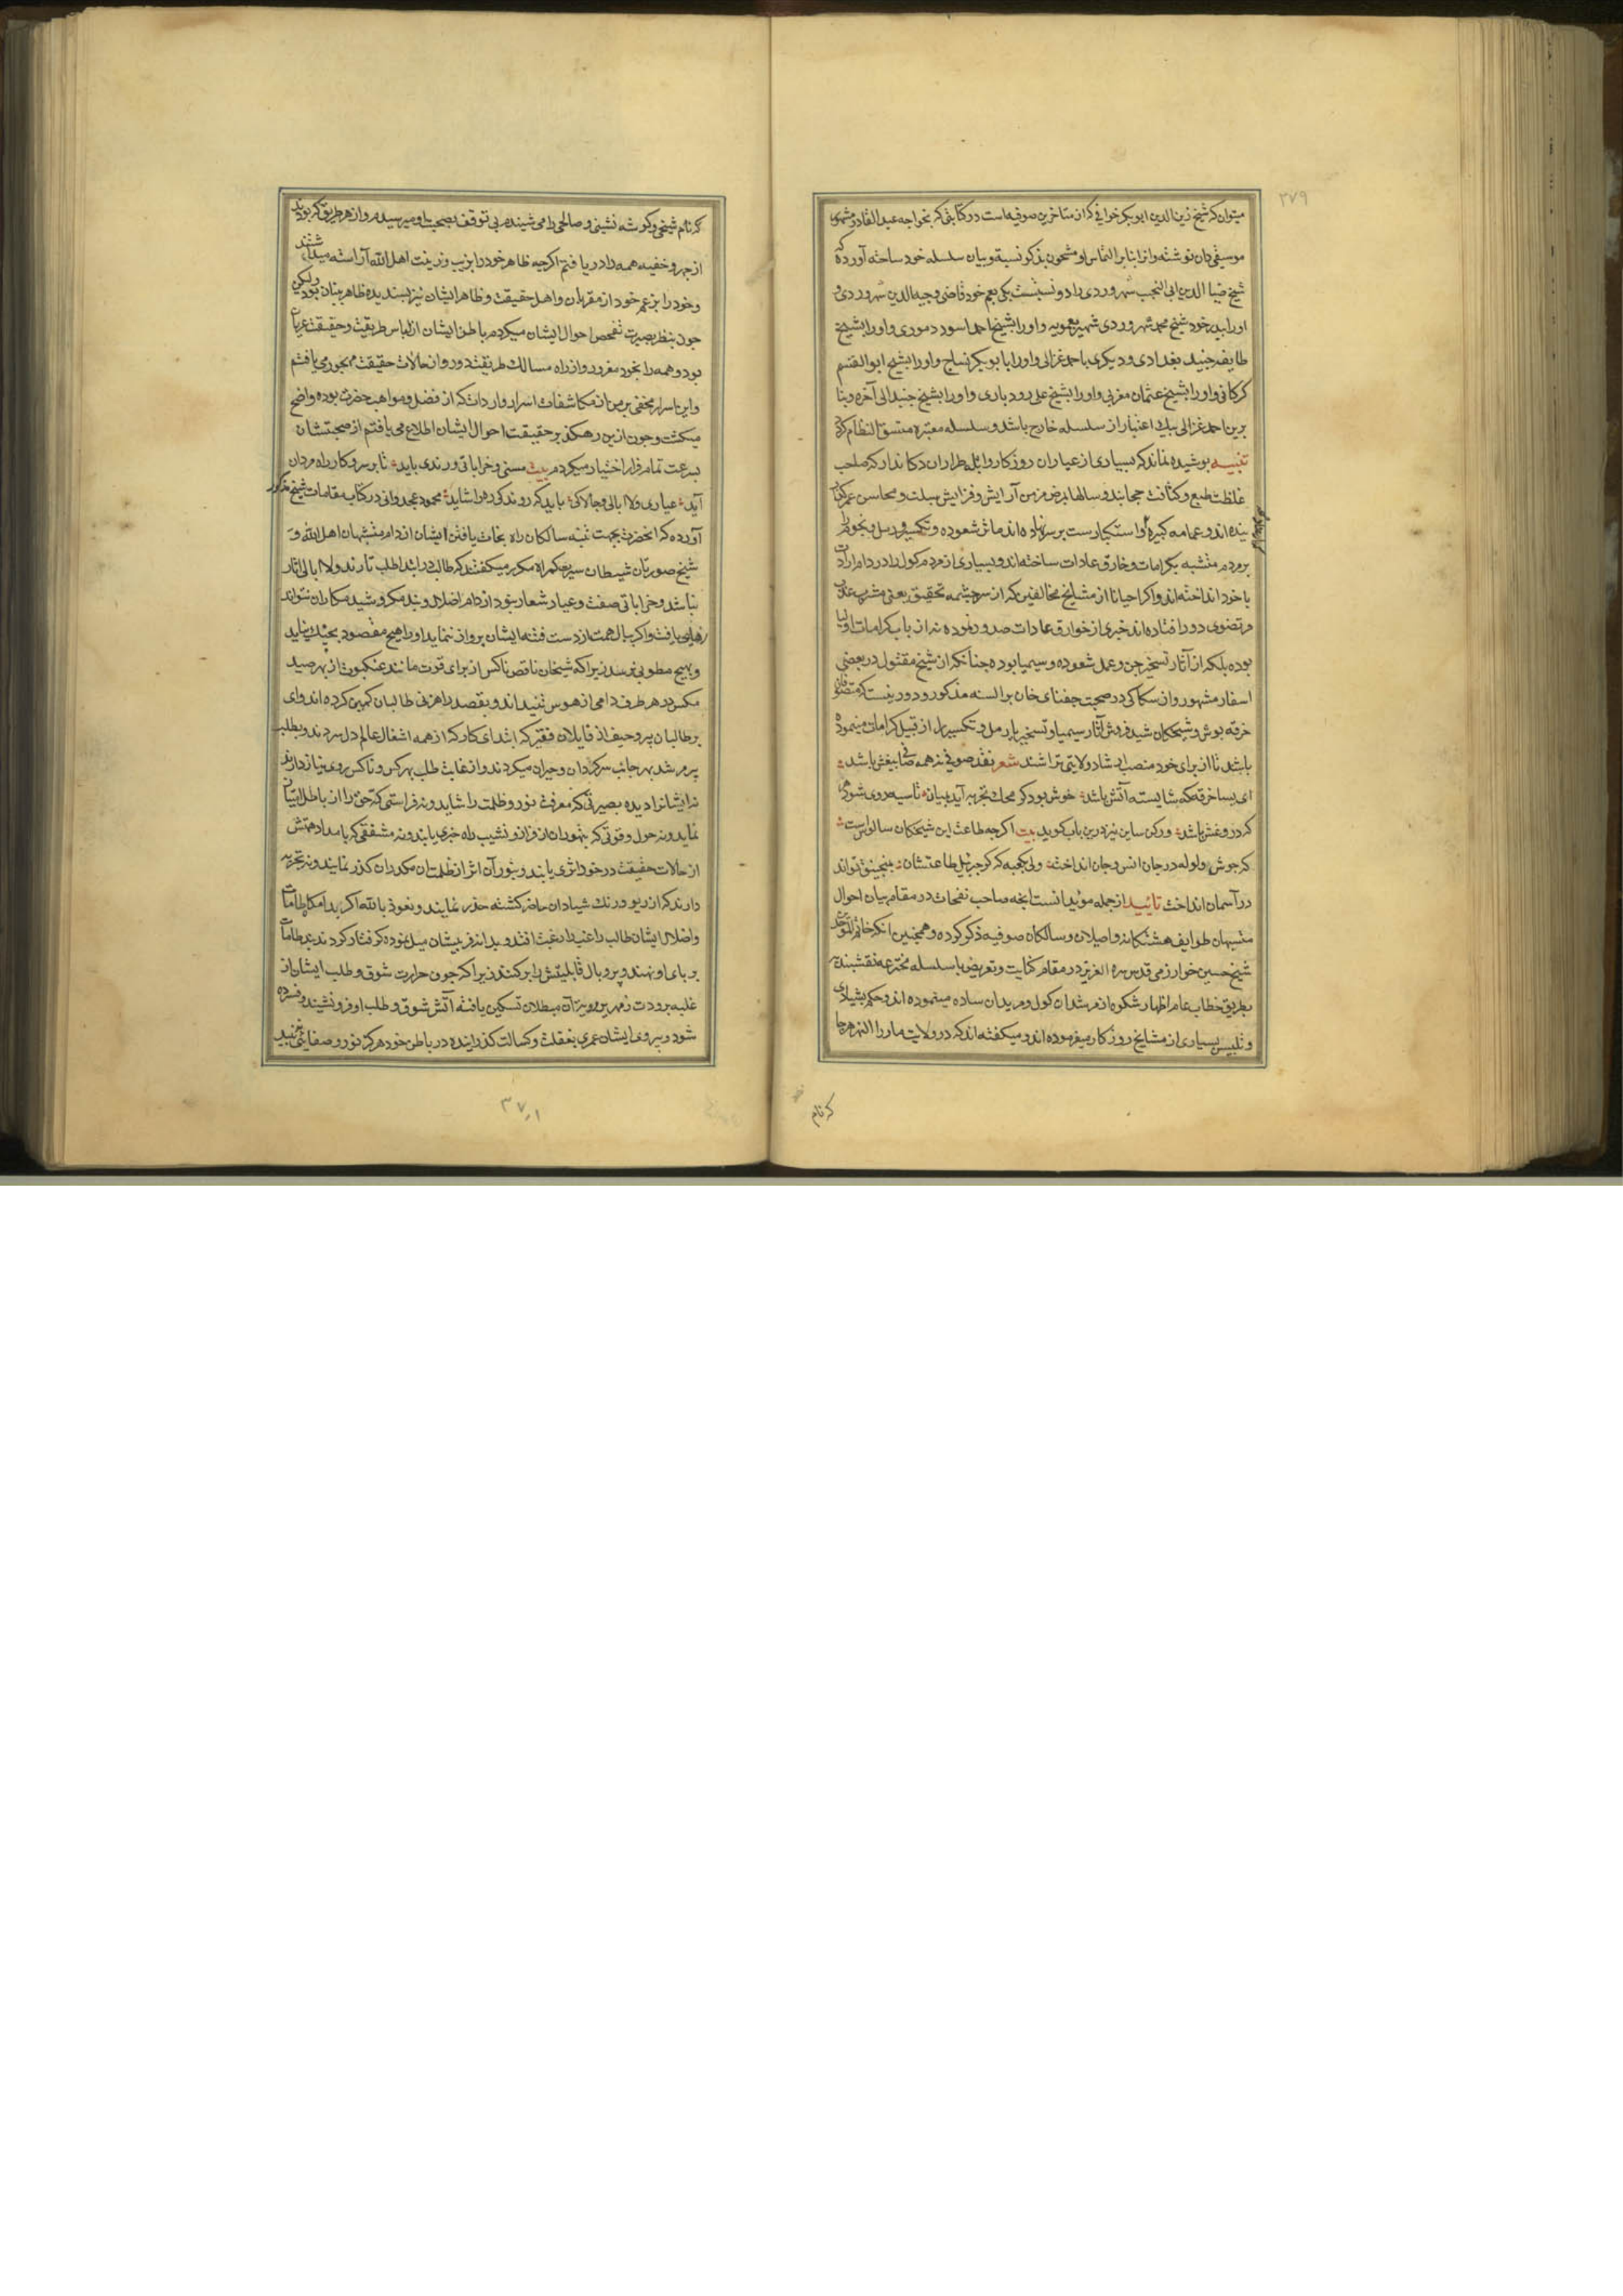 ۳۷۹
میتوان که شیخ زین الدین ابو بکر خوافی که از متاخرین صوفیه است در کتابتی که بخواجه عبدالقادر مشهور
موسیقی دان نوشته و انرا بنابر التماس او مشحون بذکر نسبة و بیان سلسله خود ساخته آورده که
شیخ ضیا الدین ابی النجیب سهروردی را دو نسبتست یکی بعم خود قاضی وجیه الدین سهروردی و
او را بپدر خود شیخ محمد سهروردی شهیر بعمویه و او را بشیخ احمد اسود دموری و او را بشیخ
طایفه جنید بغدادی و دیگری باحمد غزالی و او را بابو بکر نساج و او را بشیخ ابو القسم
کرکانی و او را بشیخ عثمان مغربی و او را بشیخ علی رودباری و او را بشیخ جنید الی آخره و بنا
برین احمد غزالی بیک اعتبار از سلسله خارج باشد و سلسله معتبره متسق النظام کردد
تنبیه پوشیده نماند که بسیاری از عیاران روزکار و ابله طراران دکاندار که صاحب
غلظت طبع و کثافت حجابند و سالها بمرض مزمن آرایش و فزایش سبلت و محاسن عمر
ینده اند و عمامه کبیره و استکبار ست بر سر نهاده اند ماثر شعوده و تکسیر و رمل و نجوم را
بر مردم متشبه بکرامات و خارق عادات ساخته اند و بسیاری از مردم کول را در دام ارادت
با خود انداخته اند و اکر احیانا از مشایخ مخالفین که از سرچشمه تحقیق یعنی مشرب عذب
مرتضوی دور افتاده اند خبری از خوارق عادات صدور نموده نه از باب کرامات اولیا
بوده بلکه از آثار تسخیر جن و عمل شعوده و سیمیا بوده چنانکه از شیخ مقتول در بعضی
اسفار مشهور و از سکاکی در صحبت جغتای خان بر السنه مذکور و دور نیست که متصوفان
خرقه پوش و شیخکان شید فروش آثار سیمیا و تسخیر یا رمل و تکسیر را از قبیل کرامات مینموده
باشند تا از برای خود منصب ارشاد و ولایتی تراشند شعر نقد صوفی نه همه صافی بیغش باشد
ای بسا خرقه که شایسته آتش باشد خوش بود کر محک تجربه آید بمیان تا سیه روی شود هر
که در و غش باشد و رکن ساین نیز درین باب کوید بیت اکرچه طاعت این شیخکان سالوس است
که جوش ولوله در جان انس و جان انداخت ولی بکعبه که کر جبرئیل طاعتشان بمنجنیق تواند
در آسمان انداخت تایید از جمله مؤیدات است انچه صاحب نفحات در مقام بیان احوال
متشبهان طوایف هشتکانه واصلان و سالکان صوفیه ذکر کرده و همچنین انکه خاتم المتوحدین
شیخ حسین خوارزمی قدس سره العزیز در مقام کنایت و تعریض با سلسله مخترعه نقشبندیه
بطریق خطاب عام اظهار شکوه از مرشدان کول و مریدان ساده مینموده اند و حکم بشیادی
و تلبیس بسیاری از مشایخ روزکار میفرموده اند و میکفته اند که در ولایت ماورا النهر هرجا
که نام
که نام شیخی و کوشه نشینی و صالحی را می شنیدم بی توقف بصحبت او میرسیدم و از هر طریق که بودند
از جهر و خفیه همه را در یافتم اکرچه ظاهر خود را بزیب و زینت اهل الله آراسته میداشتند
و خود را بزعم خود از مقربان و اهل حقیقت و ظاهر ایشان نیز پسندیده ظاهر بینان بود ولیکن
چون بنظر بصیرت تفحص احوال ایشان میکردم باطن ایشان از لباس طریقت و حقیقت عریان
بود و همه را بخود مغرور و از راه مسالک طریقت دور و از حالات حقیقت مهجور می یافتم
و این اسرار مخفی بر من از مکاشفات اسرار واردات که از فضل و مواهب حضرت بوده واضح
میکشت و چون ازین رهکذر بر حقیقت احوال ایشان اطلاع می یافتم از صحبتشان
بسرعت تمام فرار اختیار میکردم بیت مستی و خراباتی و رندی باید تا بر سر و کار راه مردان
آید عیاری و لاابالی و چالاکی باید که روند کوره را شاید محمود غجدوانی در کتاب مقامات شیخ مذکور
آورده که انحضرت بجهت تنبه سالکان راه نجات یافتن ایشان از دام متشبهان اهل الله و
شیخ صورتان شیطان سیرت کمراه مکرر میکفتند که طالب در ابتدا طلب تا رند و لاابالی آثار
نباشد و خراباتی صفت و عیار شعار نبود از دام اضلال و بند مکر و شید مکاران نتواند
رهایی یافت و اکر ببال همت از دست فتنه ایشان پرواز ننماید او را هیچ مقصود بچنک نیاید
و بهیچ مطلوبی نرسد زیرا که شیخان ناقص ناکس از برای قوت مانند عنکبوت از بهر صید
مکس در هر طرف دامی از هوس تنیده اند و بقصد راهزنی طالبان کمین کرده اند وای
بر طالبان پر و حیف از قایلان فقیر که ابتدای کار که از همه اشغال عالم دل سردند و بطلب
پیر مرشد بهر جانب سرکردان و حیران میکردند و از غایت طلب بهر کس و ناکس روی نیاز دارند
نه ایشانرا دیده بصیرتی که معرفت نور و ظلمت را شاید و نه فراستی که حق را از باطل تبیان
نماید و نه حول و قوتی که بتهور ان از فراز و نشیب راه خبری یابند و نه مشفقی که بامداد همتش
از حالات حقیقت در خود اثری یابند و بنور آن اثر از ظلمتان مکدران کذر نمایند و نه تجربه
دارند که از ریو و رنک شیادان حاضر کشته حذر نمایند و نعوذ بالله اکر بدام کا و طامات
و اضلال ایشان طالب راغب را رغبت افتد و بدانه فریبشان میل نموده کرفتار کردند بند طامات
بر پای او نهند و پر و بال قابلیتش را بر کنند زیرا که چون حرارت شوق و طلب ایشان از
غلبه برودت زمهریر آن مبطلان تسکین یافته آتش شوق و طلب او فرو نشیند و فسرده
شود و پیروی ایشان عمری بغفلت و کسالت کذرانیده در باطن خود هرکز نور و صفایی نبیند
۳۷۸۱